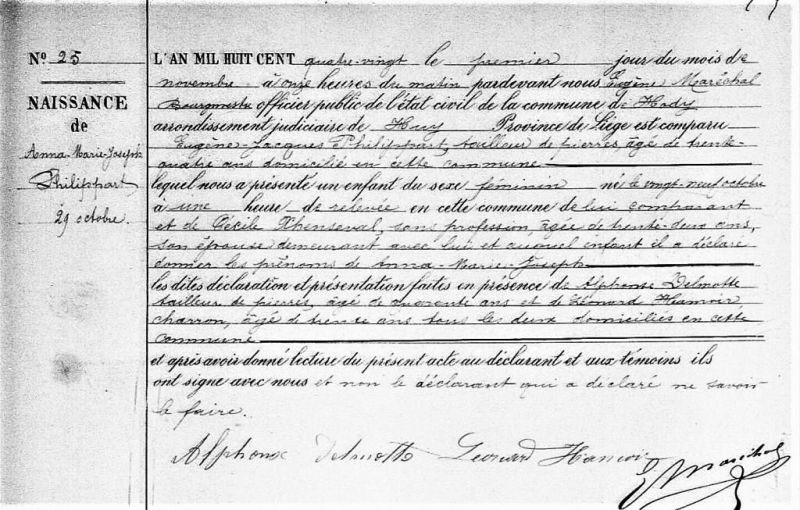 N° 25
NAISSANCE
de
Anna-Marie-Joseph
Philippart
29 octobre.
L'AN MIL HUIT CENT quatre-vingt le premier jour du mois de
novembre à onze heures du matin pardevant nous Eugène Maréchal
Bourgmestre officier public de l'état civil de la commune de Hody
arrondissement judiciaire de Huy Province de Liége est comparu
Eugène-Jacques Philippart, tailleur de pierres, âgé de trente-
quatre ans domicilié en cette commune
lequel nous a présenté un enfant du sexe féminin né le vingt-neuf octobre
à une heure de relevée en cette commune de lui comparant
et de Cécile Thenseval, sans profession, âgée de trente-deux ans,
son épouse demeurant avec lui et auquel enfant il a déclaré
donner les prénoms de Anna-Marie-Joseph
les dites déclaration et présentation faites en présence de Alphonse Delmotte
tailleur de pierres, âgé de quarante ans et de Léonard Hamoir
charron, âgé de trente ans tous les deux domiciliés en cette
commune
et après avoir donné lecture du présent acte au déclarant et aux témoins ils
ont signé avec nous et non le déclarant qui a déclaré ne savoir
le faire.
Alphonse Delmotte Leonard Hamoir
E Maréchal